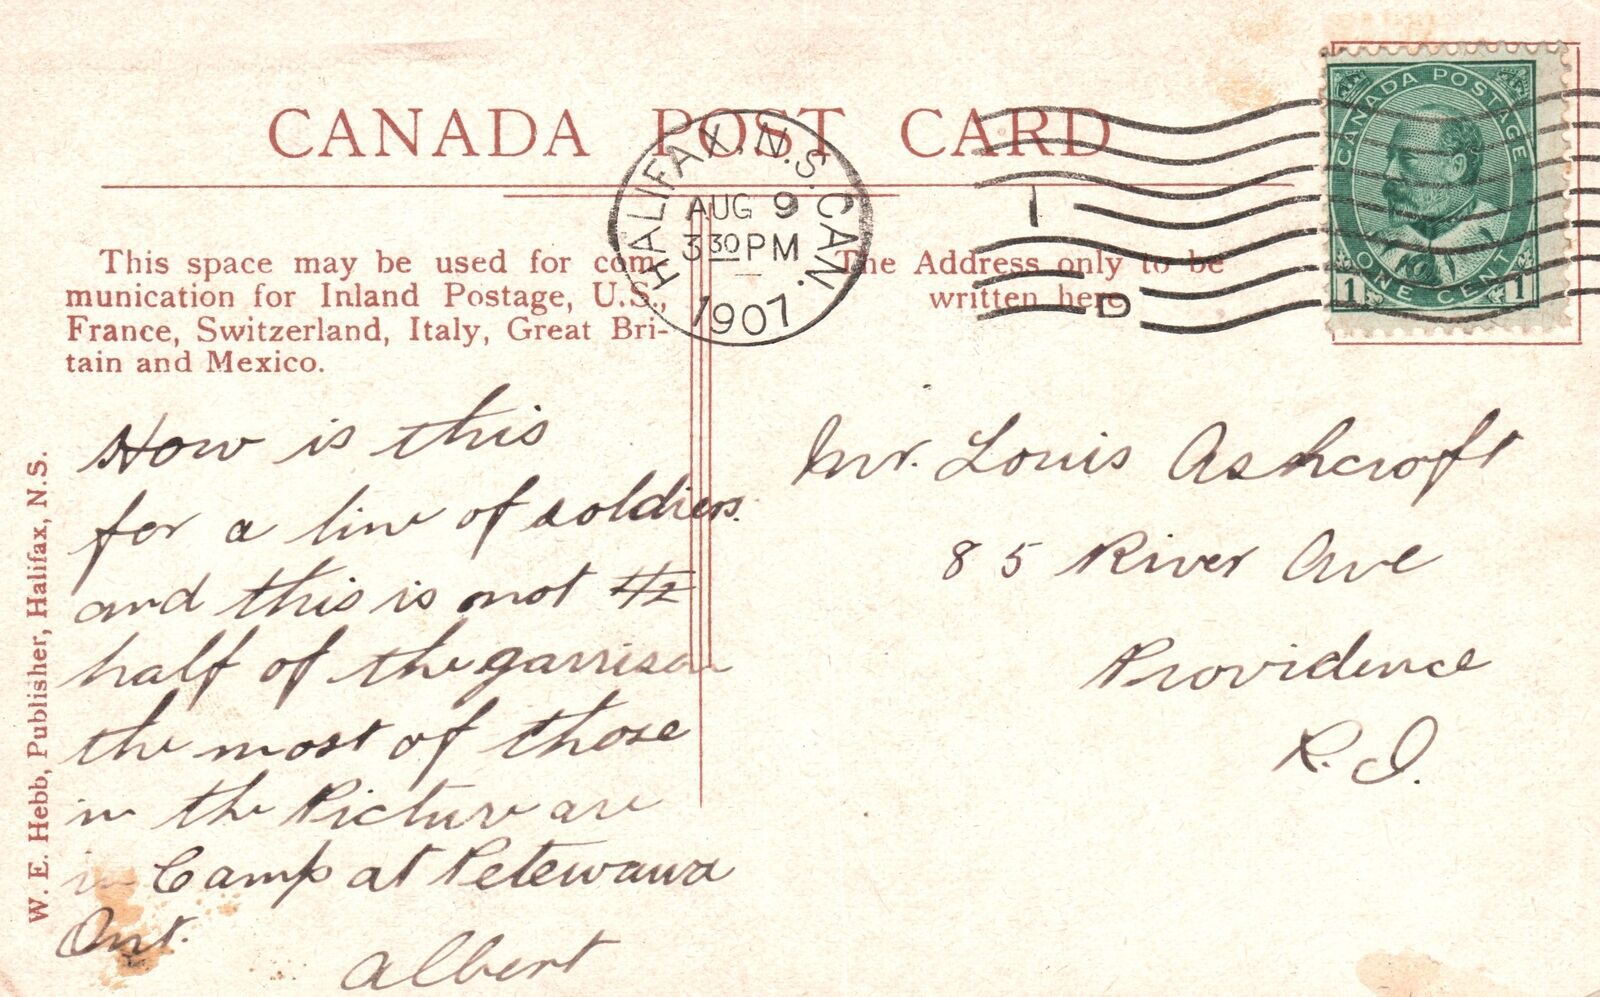 CANADA POST CARD
HALIFAX. N.S. CAN.
AUG 9
3 30 PM
1907
I
D
CANADA POSTAGE
ONE CENT
1 1
This space may be used for com-
munication for Inland Postage, U.S.,
France, Switzerland, Italy, Great Bri-
tain and Mexico.
The Address only to be
written here
How is this
for a line of soldiers.
and this is not 1/2
half of the garrison
the most of those
in the Picture are
in Camp at Petewawa
Ont.
Albert
Mr. Louis Ashcroft
85 River Ave
Providence
R. I.
W. E. Hebb, Publisher, Halifax, N.S.